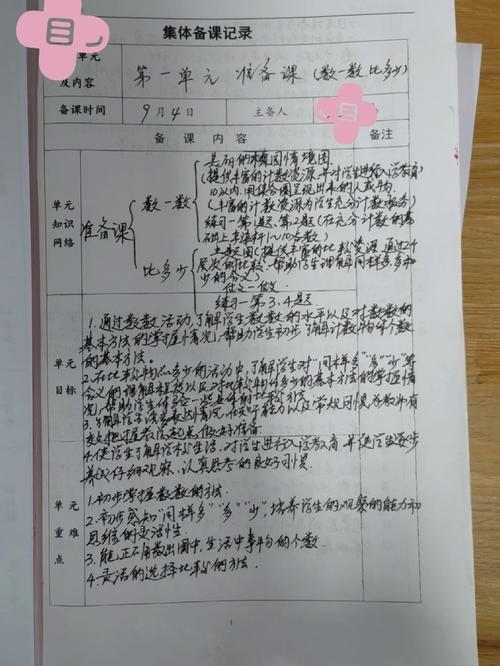 目
集体备课记录
单元
及内容
第一单元 准备课（数一数 比多少）
备课时间
9月4日
主备人
目
备课内容
备注
单元
知识
网络
准备课
数一数
美丽的校园情境图
（提供丰富的计数资源，并对学生进行入学教育）
10以内用集合圈呈现出来的人或物
（丰富的计数资源为学生充分计数服务）
练习一第1题、第2题（在充分计数的基
础上来认读1~10各数）
比多少
主题图（提供丰富的比较资源，通过2个
层次的比较，帮助学生理解同样多、多和
少的含义）
做一做
练习一第3、4题
单元
目标
1.通过数数活动，了解学生数数的水平以及对数数的
基本方法的掌握情况，帮助学生初步了解计数物体个数
的基本方法。
2.在比较物体多少的活动中，了解学生对“同样多”“多”“少”等
含义的理解程度以及对比较物体多少的基本方法的掌握情
况，帮助学生体会一些具体的比较方法。
3.了解学生语言表达情况
以及常规习惯，为教师有
效把握教学起点做好准备
4.使学生了解学校生活，对学生进行入学教育，并使学生逐步
养成仔细观察、认真思考的良好习惯。
单元
重难
点
1.初步掌握数数的方法。
2.初步感知“同样多”“多”“少”，培养学生的观察的能力和
思维的灵活性。
3.能正确数出图中、生活中事物的个数。
4.灵活的选择比较的方法。
1